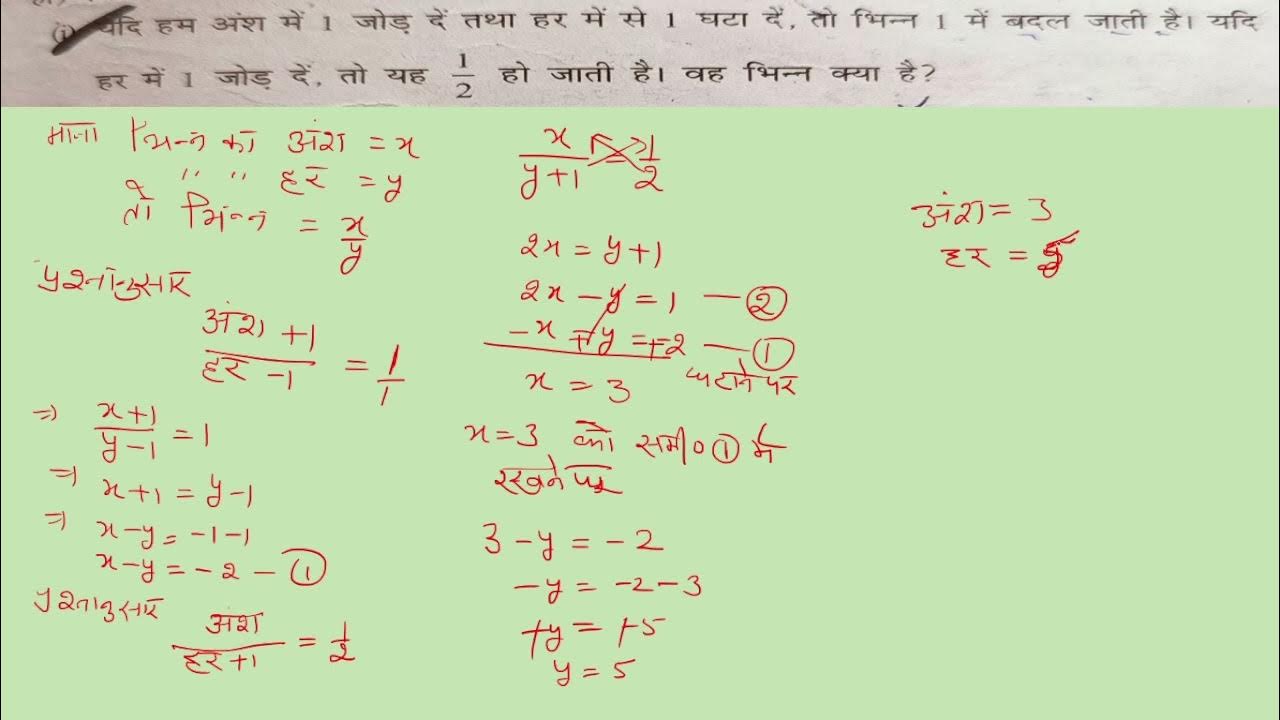 (i) यदि हम अंश में 1 जोड़ दें तथा हर में से 1 घटा दें, तो भिन्न 1 में बदल जाती है। यदि
हर में 1 जोड़ दें, तो यह 1/2 हो जाती है। वह भिन्न क्या है?
माना भिन्न का अंश = x
" " हर = y
तो भिन्न = x/y
प्रश्नानुसार
अंश +1 / हर -1 = 1/1
=> x+1 / y-1 = 1
=> x+1 = y-1
=> x-y = -1-1
x-y = -2 - ①
प्रश्नानुसार
अंश / हर+1 = 1/2
x / y+1 = 1/2
2x = y+1
2x - y = 1 — ②
-x + y = +2 — ①
घटाने पर
x = 3
x=3 को समी० ① में
रखने पर
3 - y = -2
-y = -2-3
+y = +5
y = 5
अंश = 3
हर = 5